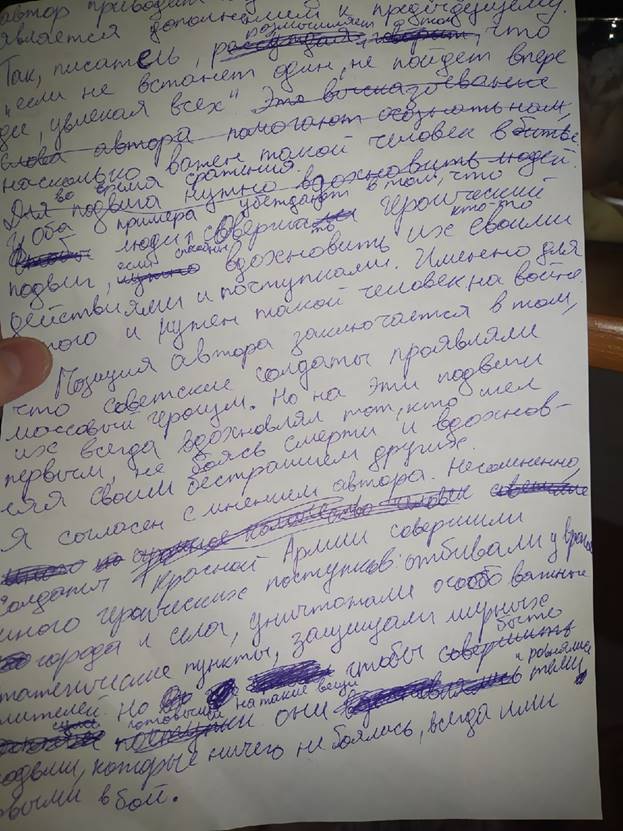 автор приводит
является дополнением к предыдущему.
размышляет о том
Так, писатель, рассуждая, говорит, что
"если не встанет один, не пойдет впере
ди, увлекая всех" Это высказывание
слова автора помогают осознать нам,
насколько важен такой человек в битве.
во время сражения
Для подвига нужно вдохновить людей.
И Оба примера убеждают в том, что
люди совершать героический
если способны кто-то
подвиг, нужно вдохновить их своими
действиями и поступками. Именно для
этого и нужен такой человек на войне.
Позиция автора заключается в том,
что советские солдаты проявляли
массовый героизм. Но на эти подвиги
их всегда вдохновлял тот, кто шел
первым, не боясь смерти и вдохнов-
ляя своим бесстрашием других.
Я согласен с мнением автора. Несомненно,
солдаты Красной Армии совершили
много героических поступков: отбивали у врагов
города и села, уничтожали особо важные
стратегические пункты, защищали мирных
жителей. Но чтобы совершить
быть готовыми на такие вещи и ровнялись
поступки они теми
людьми, которые ничего не боялись, всегда шли
первыми в бой.